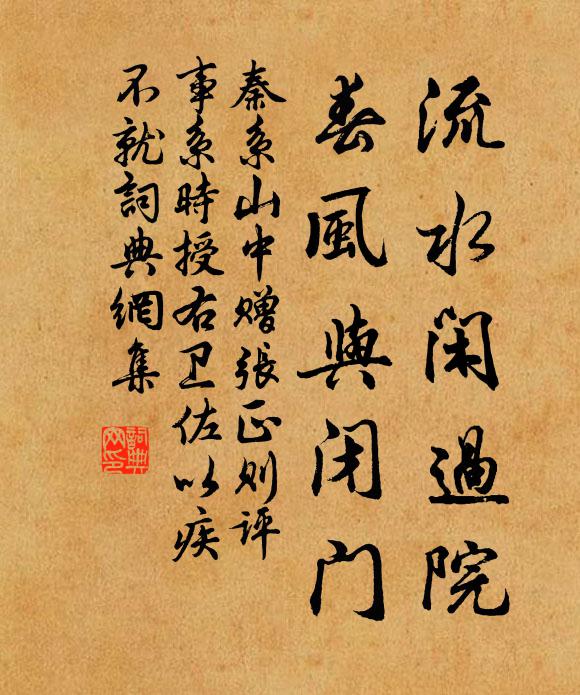 流水闲過院
春風與闭门
秦系山中赠張正则評
事系時授右卫佐以疾
不就詞典網集
詞典网印